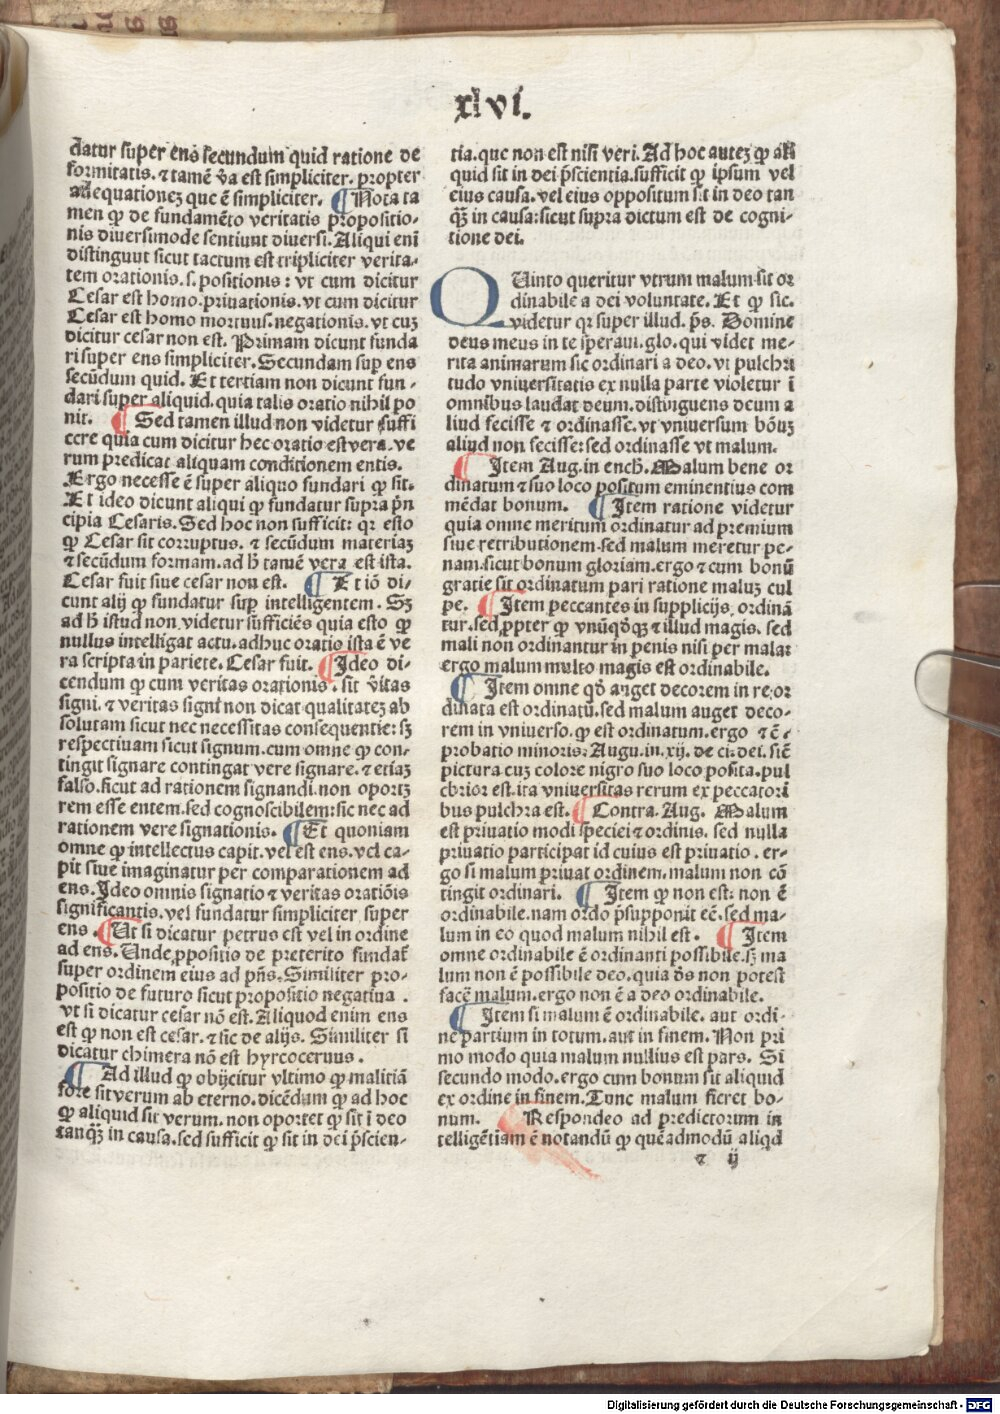 xlvi.
datur super ens secundum quid ratione de
formitatis. ⁊ tamē v̄a est simpliciter. propter
adequationeʒ que ē simpliciter. ¶ Nota ta
men ꝙ de fundamēto veritatis propositio-
nis diversimode sentiunt diversi. Aliqui eni
distinguut sicut tactum est tripliciter verita-
tem orationis. s. positionis : vt cum dicitur
Cesar est homo. privationis. vt cum dicitur
Cesar est homo mortuus. negationis. vt cuʒ
dicitur cesar non est. Primam dicunt funda
ri super ens simpliciter. Secundam suꝑ ens
secūdum quid. Et tertiam non dicunt fun-
dari super aliquid. quia talis oratio nihil po
nit. ¶ Sed tamen illud non videtur suffi
cere quia cum dicitur hec oratio est vera. ve
rum predicat aliquam conditionem entis.
Ergo necesse ē super aliquo fundari ꝙ sit.
Et ideo dicunt aliqui ꝙ fundatur supra pⁿ̄
cipia Cesaris. Sed hoc non sufficit: qr esto
ꝙ Cesar sit corruptus. ⁊ secūdum materiaʒ
⁊ secūdum formam. ad h̄ tamē vera est ista.
Cesar fuit sive cesar non est. ¶ Et iō di-
cunt alij ꝙ fundatur suꝑ intelligentem. Sʒ
ad h̄ istud non videtur sufficiēs quia esto ꝙ
nullus intelligat actu. adhuc oratio ista ē ve
ra scripta in pariete. Cesar fuit. ¶ Ideo di-
cendum ꝙ cum veritas orationis. sit v̄itas
signi. ⁊ veritas signi non dicat qualitateʒ ab
solutam sicut nec necessitas consequentie: sʒ
respectivam sicut signum. cum omne ꝙ con-
tingit signare contingat vere signare. ⁊ etiaʒ
falso. sicut ad rationem signandi. non oportʒ
rem esse entem. sed cognoscibilem: sic nec ad
rationem vere signationis. ¶ Et quoniam
omne ꝙ intellectus capit. vel est ens. vel ca-
pit sive imaginatur per comparationem ad
ens. Ideo omnis signatio ⁊ veritas oratiōis
significantis. vel fundatur simpliciter super
ens. ¶ Ut si dicatur petrus est vel in ordine
ad ens. Unde ꝓpositio de preterito fundaƭ
super ordinem eius ad pn̄s. Similiter pro-
positio de futuro sicut propositio negativa .
vt si dicatur cesar nō est. Aliquod enim ens
est ꝙ non est cesar. ⁊ sic de alijs. Similiter si
dicatur chimera nō est hyrcocervus .
¶ Ad illud ꝙ obijcitur vltimo ꝙ malitiā
fore sit verum ab eterno. dicēdum ꝙ ad hoc
ꝙ aliquid sit verum. non oportet ꝙ sit ī deo
tanqʒ̄ in causa. sed sufficit ꝙ sit in dei p̄scien-
tia. que non est nisi veri. Ad hoc auteʒ ꝙ ali
quid sit in dei p̄scientia. sufficit ꝙ ipsum vel
eius causa. vel eius oppositum sit in deo tan
qʒ̄ in causa: sicut supra dictum est de cogni-
tione dei.
QUinto queritur vtrum malum sit or
dinabile a dei voluntate. Et ꝙ sic.
videtur qr super illud. p̄s. Domine
deus meus in te speravi. glo. qui videt me-
rita animarum sic ordinari a deo. vt pulchri
tudo vniversitatis ex nulla parte violetur ī
omnibus laudat deum. distinguens deum a
liud fecisse ⁊ ordinasse. vt vniversum bōuʒ
aliud non fecisse: sed ordinasse vt malum.
¶ Item Aug. in ench. Malum bene or
dinatum ⁊ suo loco positum eminentius com
mēdat bonum. ¶ Item ratione videtur
quia omne meritum ordinatur ad premium
sive retributionem. sed malum meretur pe-
nam. sicut bonum gloriam. ergo ⁊ cum bonū
gratie sit ordinatum pari ratione maluʒ cul
pe. ¶ Item peccantes in supplicijs ordinā
tur. sed ꝓpter ꝙ vnūqd̄qʒ ⁊ illud magis. sed
mali non ordinantur in penis nisi per malaƭ
ergo malum multo magis est ordinabile.
¶ Item omne qd̄ auget decorem in re or
dinata est ordinatū. sed malum auget deco-
rem in vniverso. ꝙ est ordinatum. ergo ⁊ c̄
probatio minoris. Augu. in. xij. de ci. dei. sic̄
pictura cuʒ colore nigro suo loco posita. pul
chrior est. ita vniversitas rerum ex peccatori
bus pulchra est. ¶ Contra. Aug. Malum
est privatio modi speciei ⁊ ordinis. sed nulla
privatio participat id cuius est privatio. er-
go si malum privat ordinem. malum non cō
tingit ordinari. ¶ Item ꝙ non est: non ē
ordinabile. nam ordo p̄supponit eē. sed ma-
lum in eo quod malum nihil est. ¶ Item
omne ordinabile ē ordinanti possibile. sʒ ma
lum non ē possibile deo. quia d̄s non potest
facē malum. ergo non ē a deo ordinabile.
¶ Item si malum ē ordinabile. aut ordi-
ne partium in totum. aut in finem. Non pri
mo modo quia malum nullius est pars. Si
secundo modo. ergo cum bonum sit aliquid
ex ordine in finem. Tunc malum fieret bo-
num. ¶ Respondeo ad predictorum in
telligētiam ē notandū ꝙ quēadmodū aliqd
⁊ ij
Digitalisierung gefördert durch die Deutsche Forschungsgemeinschaft - DFG